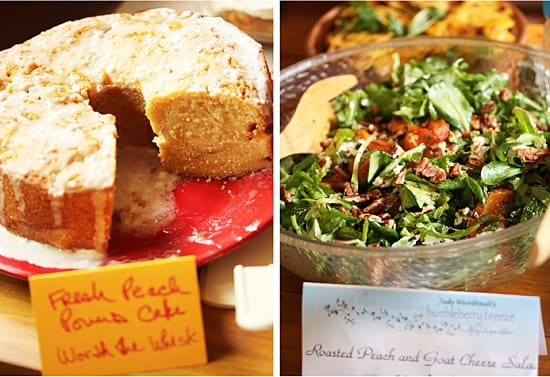 Fresh Peach
Pound Cake
Worth the Whisk
bumbleberry breeze
Roasted Peach and Goat Cheese Sala